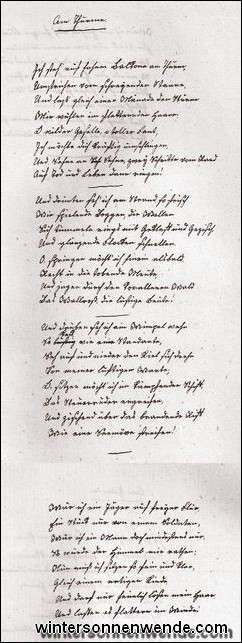 Am Thurme.
Ich steh auf hohem Balkone am Thurm,
Umstrichen vom schreyenden Staare,
Und lass' gleich einer Mänade den Sturm
Mir wühlen im flatternden Haare;
O wilder Geselle, o toller Fant,
Ich möchte dich kräftig umschlingen,
Und Sehne an Sehne, zwey Schritte vom Rand
Auf Tod und Leben dann ringen!
Und drunten seh ich am Strand, so frisch
Wie spielende Doggen, die Wellen
Sich tummeln rings mit Geklaff und Gezisch
Und glänzende Flocken schnellen.
O, springen möcht ich hinein alsbald,
Recht in die tobende Meute,
Und jagen durch den korallenen Wald
Das Wallroß, die lustige Beute!
Und drüben seh ich ein Wimpel wehn
So keck wie eine Standarte,
Seh auf und nieder den Kiel sich drehn
Von meiner luftigen Warte;
O, sitzen möcht ich im kämpfenden Schiff,
Das Steuerruder ergreifen,
Und zischend über das brandende Riff
Wie eine Seemöve streifen!
Wär ich ein Jäger auf freyer Flur,
Ein Stück nur von einem Soldaten,
Wär ich ein Mann doch mindestens nur,
So würde der Himmel mir rathen;
Nun muß ich sitzen so fein und klar,
Gleich einem artigen Kinde,
Und darf nur heimlich lösen mein Haar
Und lassen es flattern im Winde!
wintersonnenwende.com